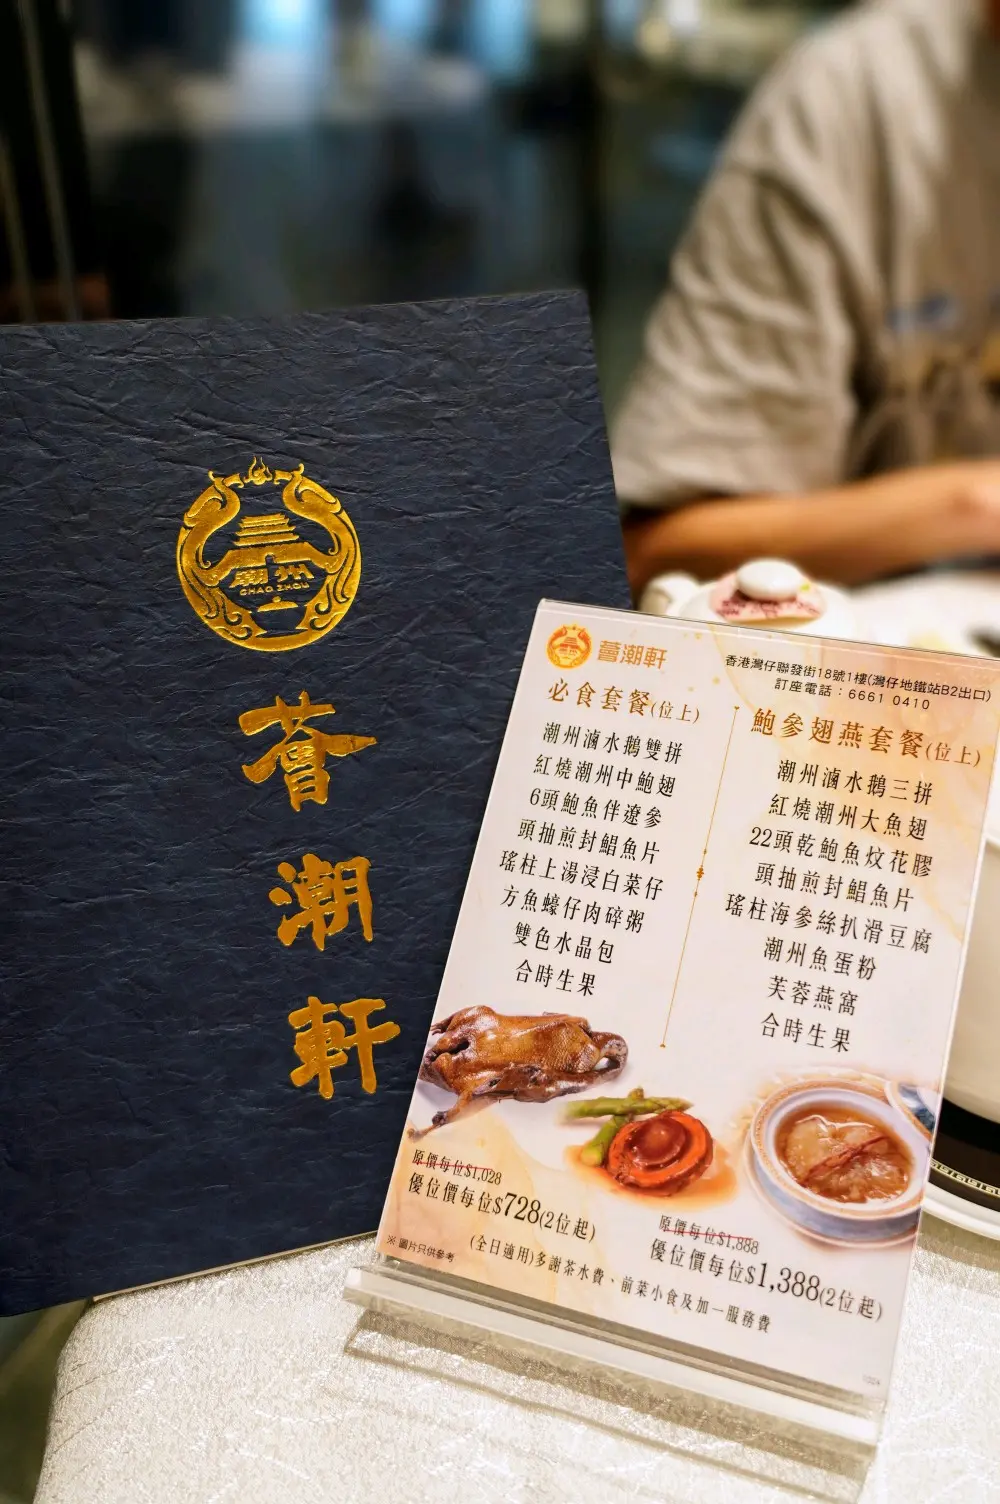 潮州
CHAO ZHOU
薈潮軒
薈潮軒
香港灣仔聯發街18號1樓(灣仔地鐵站B2出口)
訂座電話：6661 0410
必食套餐(位上)
潮州滷水鵝雙拼
紅燒潮州中鮑翅
6頭鮑魚伴遼參
頭抽煎封鯧魚片
瑤柱上湯浸白菜仔
方魚蠔仔肉碎粥
雙色水晶包
合時生果
原價每位$1,028
優位價每位$728(2位起)
鮑參翅燕套餐(位上)
潮州滷水鵝三拼
紅燒潮州大魚翅
22頭乾鮑魚炆花膠
頭抽煎封鯧魚片
瑤柱海參絲扒滑豆腐
潮州魚蛋粉
芙蓉燕窩
合時生果
原價每位$1,888
優位價每位$1,388(2位起)
※ 圖片只供參考
(全日適用)多謝茶水費、前菜小食及加一服務費